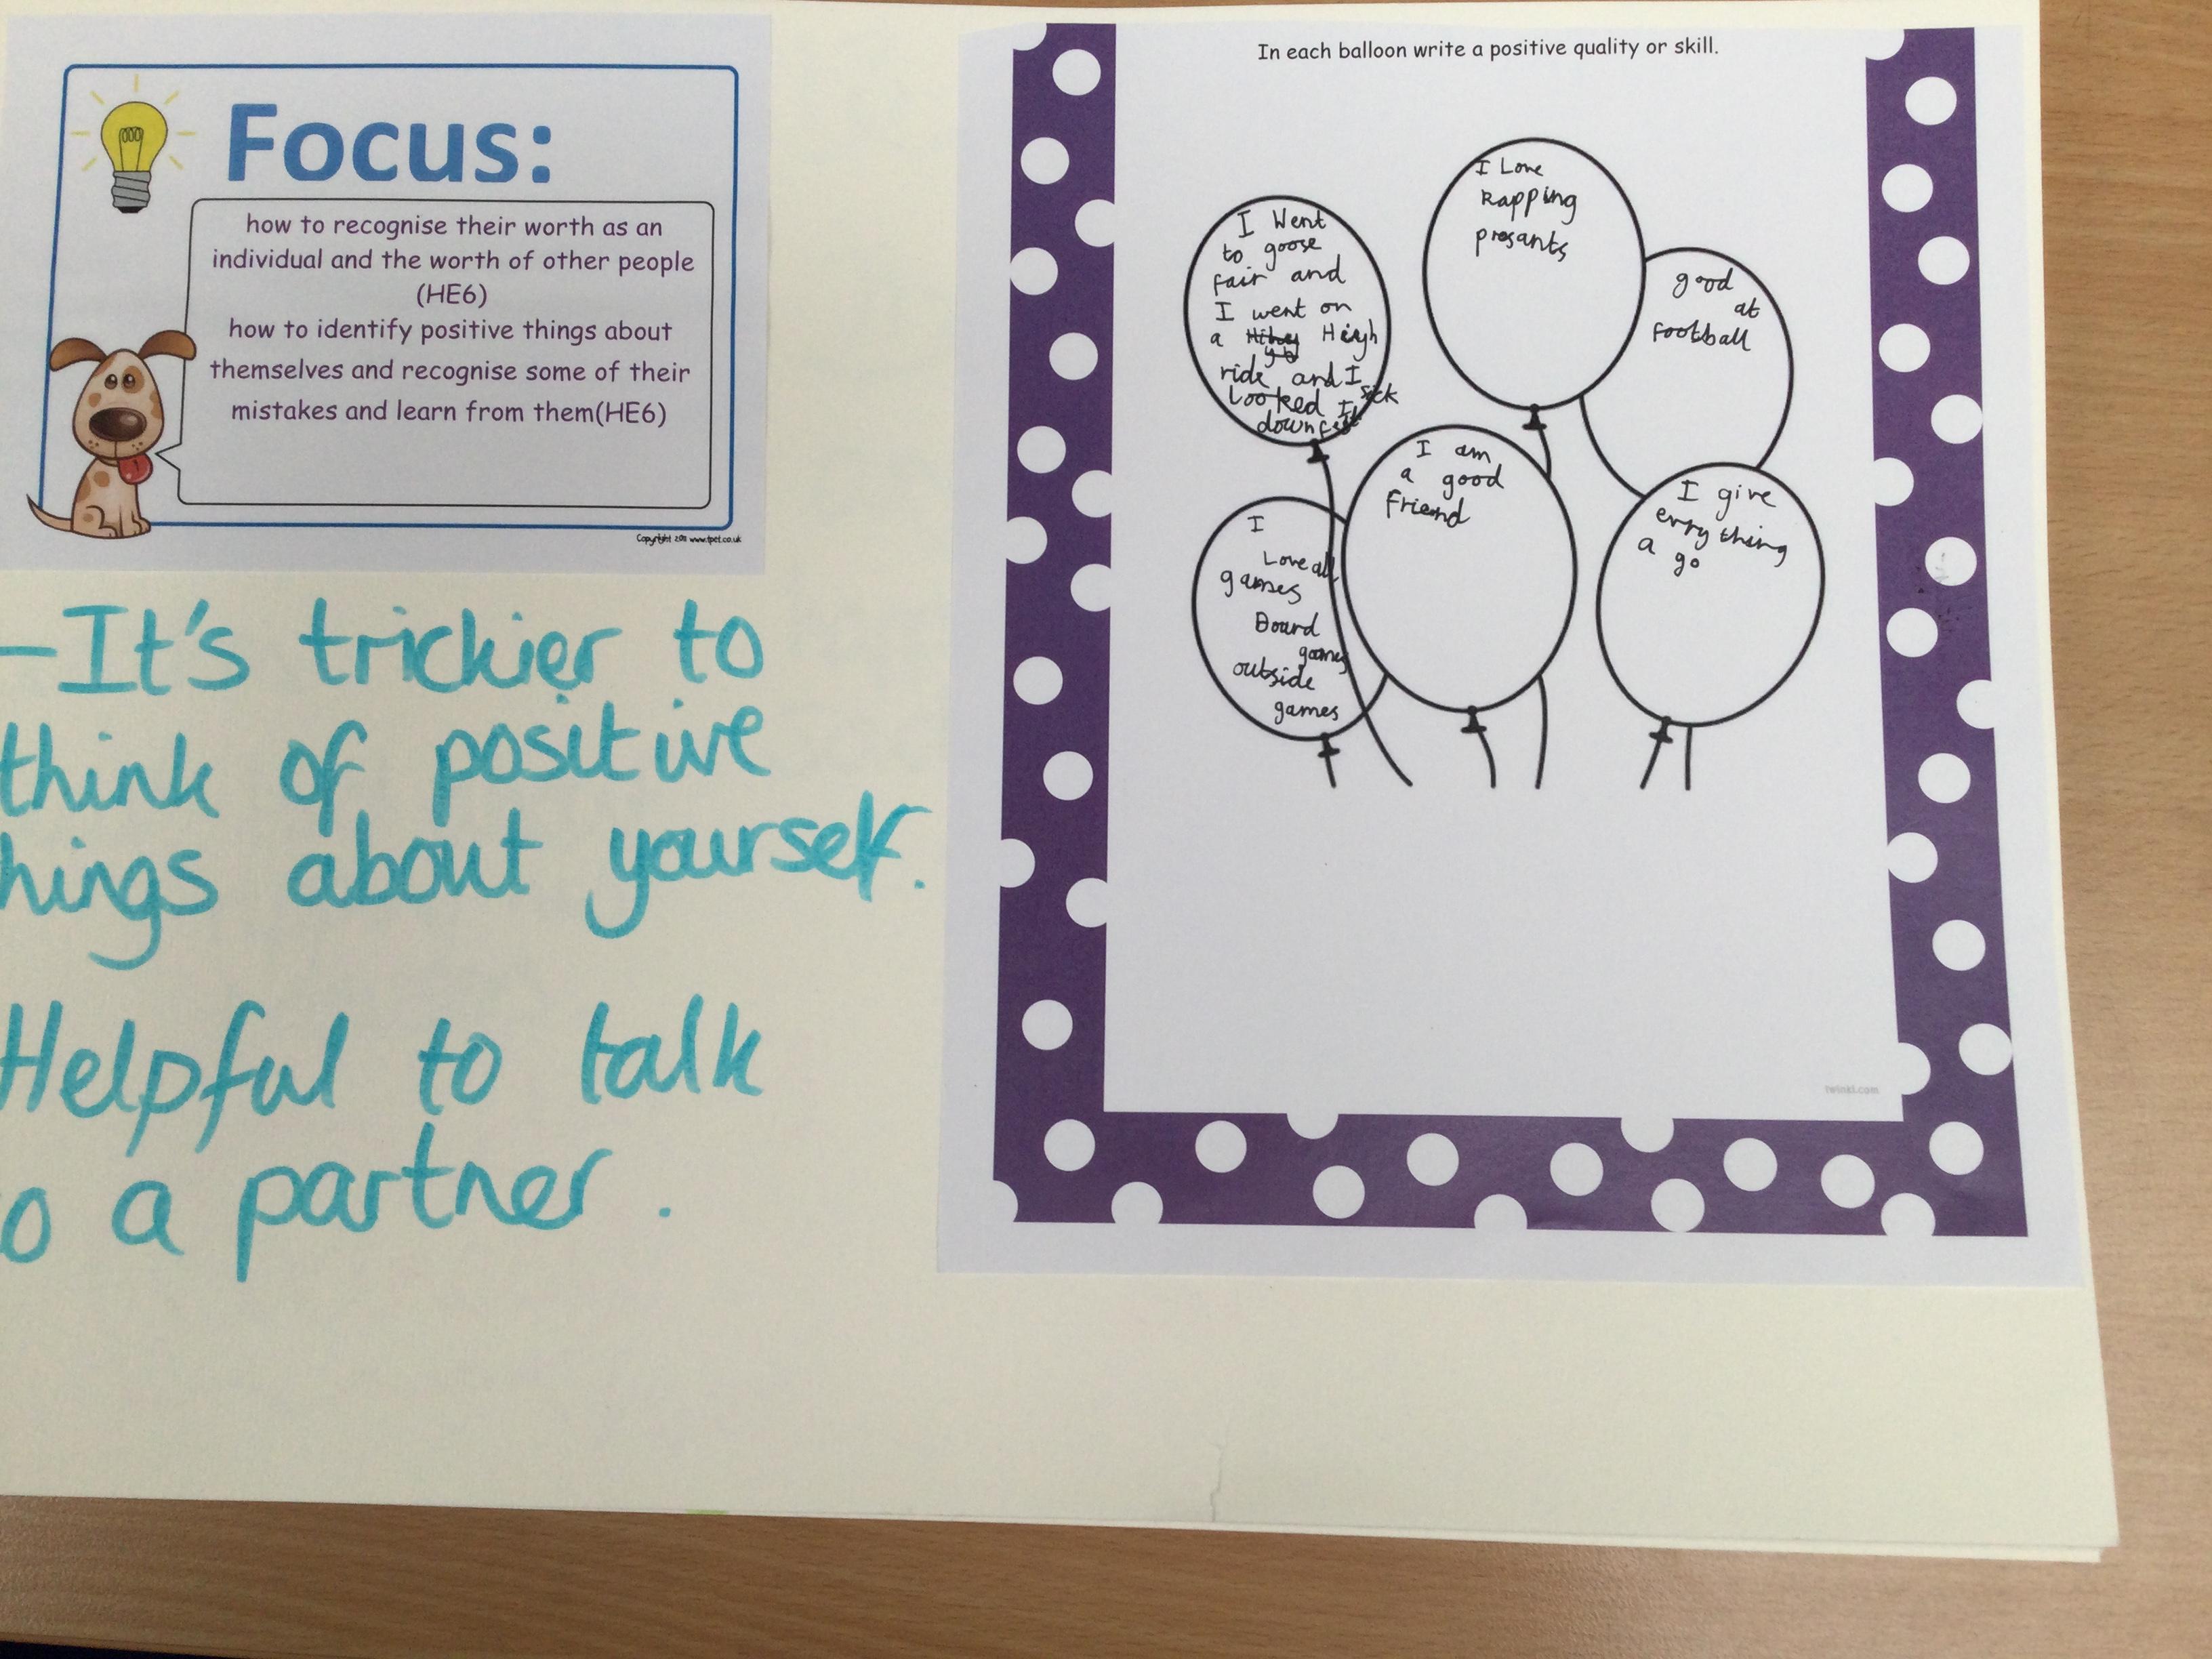 Focus:
how to recognise their worth as an
individual and the worth of other people
(HE6)
how to identify positive things about
themselves and recognise some of their
mistakes and learn from them(HE6)
Copyright 2011 www.tpet.co.uk
-It's trickier to
think of positive
hings about yourself.
Helpful to talk
o a partner.
In each balloon write a positive quality or skill.
I Went
to goose
fair and
I went on
a High
ride and I
Looked I sick
down felt
I Love
Rapping
presants
good
at
football
I
Love all
games
Board
games
outside
games
I am
a good
Friend
I give
erry thing
a go
twinkl.com